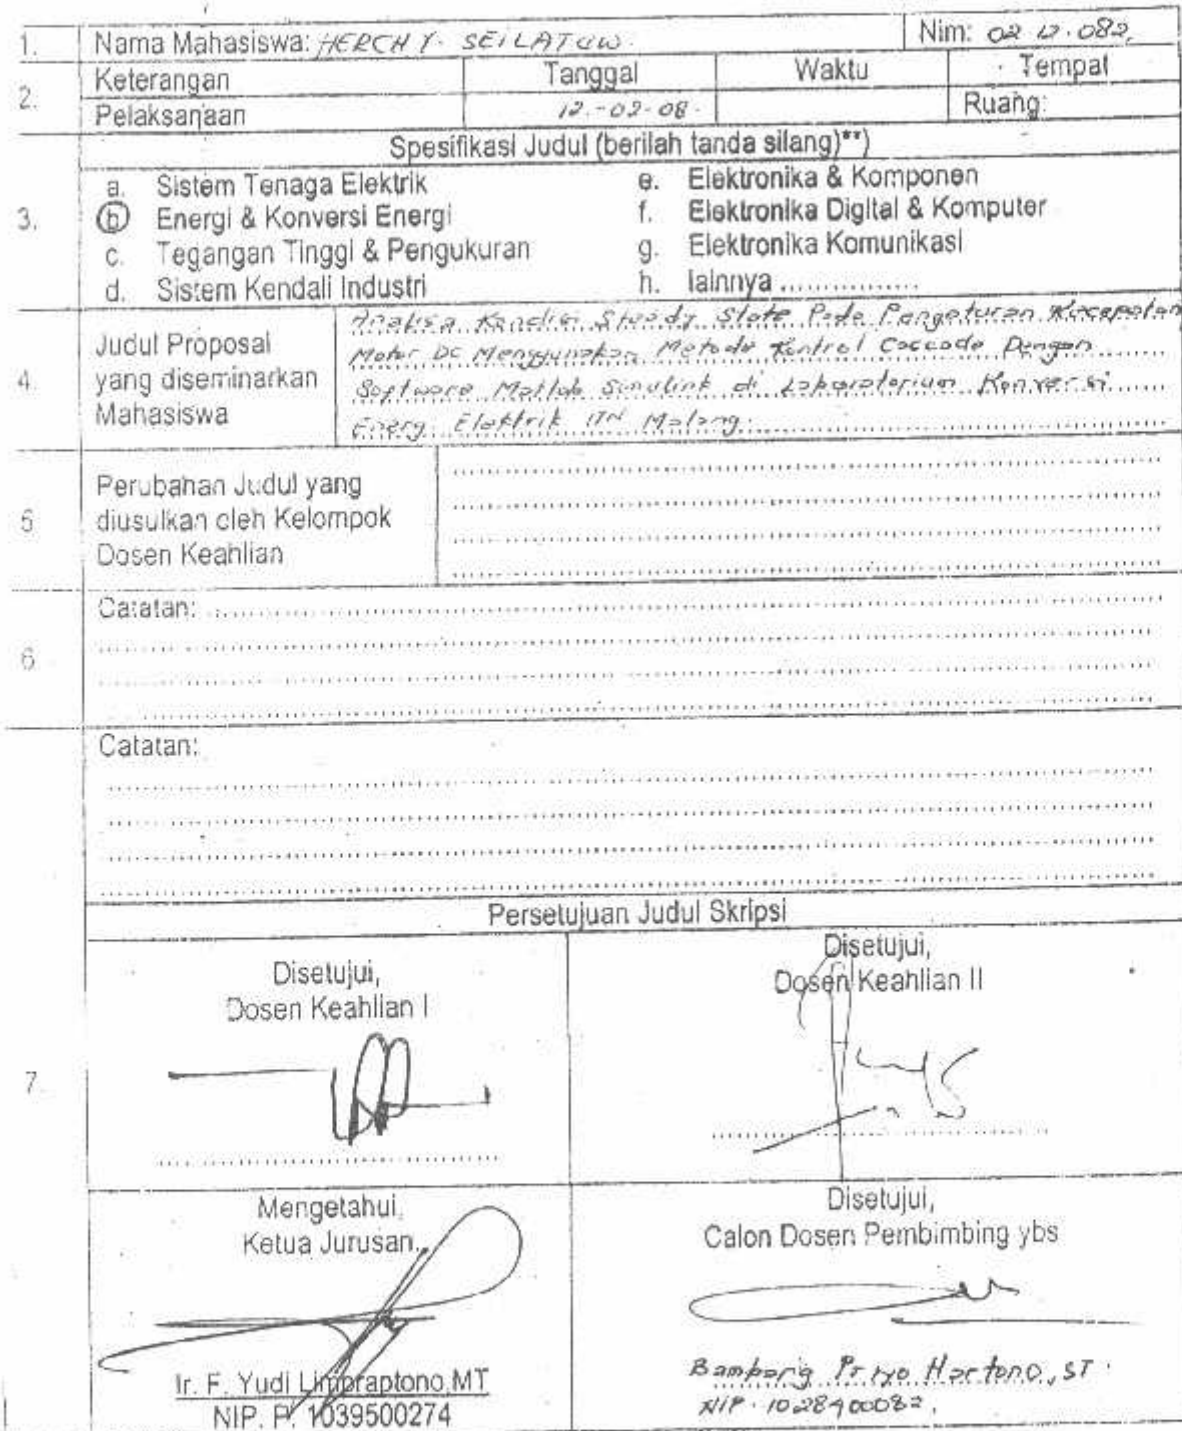 1. Nama Mahasiswa: HERCH Y. SEILATUW. Nim: 02.12.082,
2. Keterangan Tanggal Waktu Tempat
Pelaksanaan 12.-02-08. Ruang:
Spesifikasi Judul (berilah tanda silang)**)
3.
a. Sistem Tenaga Elektrik
b Energi & Konversi Energi
c. Tegangan Tinggi & Pengukuran
d. Sistem Kendali Industri
e. Elektronika & Komponen
f. Elektronika Digital & Komputer
g. Elektronika Komunikasi
h. lainnya ................
4. Judul Proposal
yang diseminarkan
Mahasiswa
Analisa Kondisi Steady State Pada Pengaturan Kecepatan
Motor DC Menggunakan Metode Kontrol Cascade Dengan
Software Matlab Simulink di Laboratorium Konversi
Energi Elektrik ITN Malang.
5. Perubahan Judul yang
diusulkan oleh Kelompok
Dosen Keahlian
6. Catatan:
Catatan:
Persetujuan Judul Skripsi
7.
Disetujui,
Dosen Keahlian I
Disetujui,
Dosen Keahlian II
Mengetahui,
Ketua Jurusan,
Ir. F. Yudi Limpraptono,MT
NIP. P. 1039500274
Disetujui,
Calon Dosen Pembimbing ybs
Bambang Priyo Hartono, ST.
NIP. 1028400082,